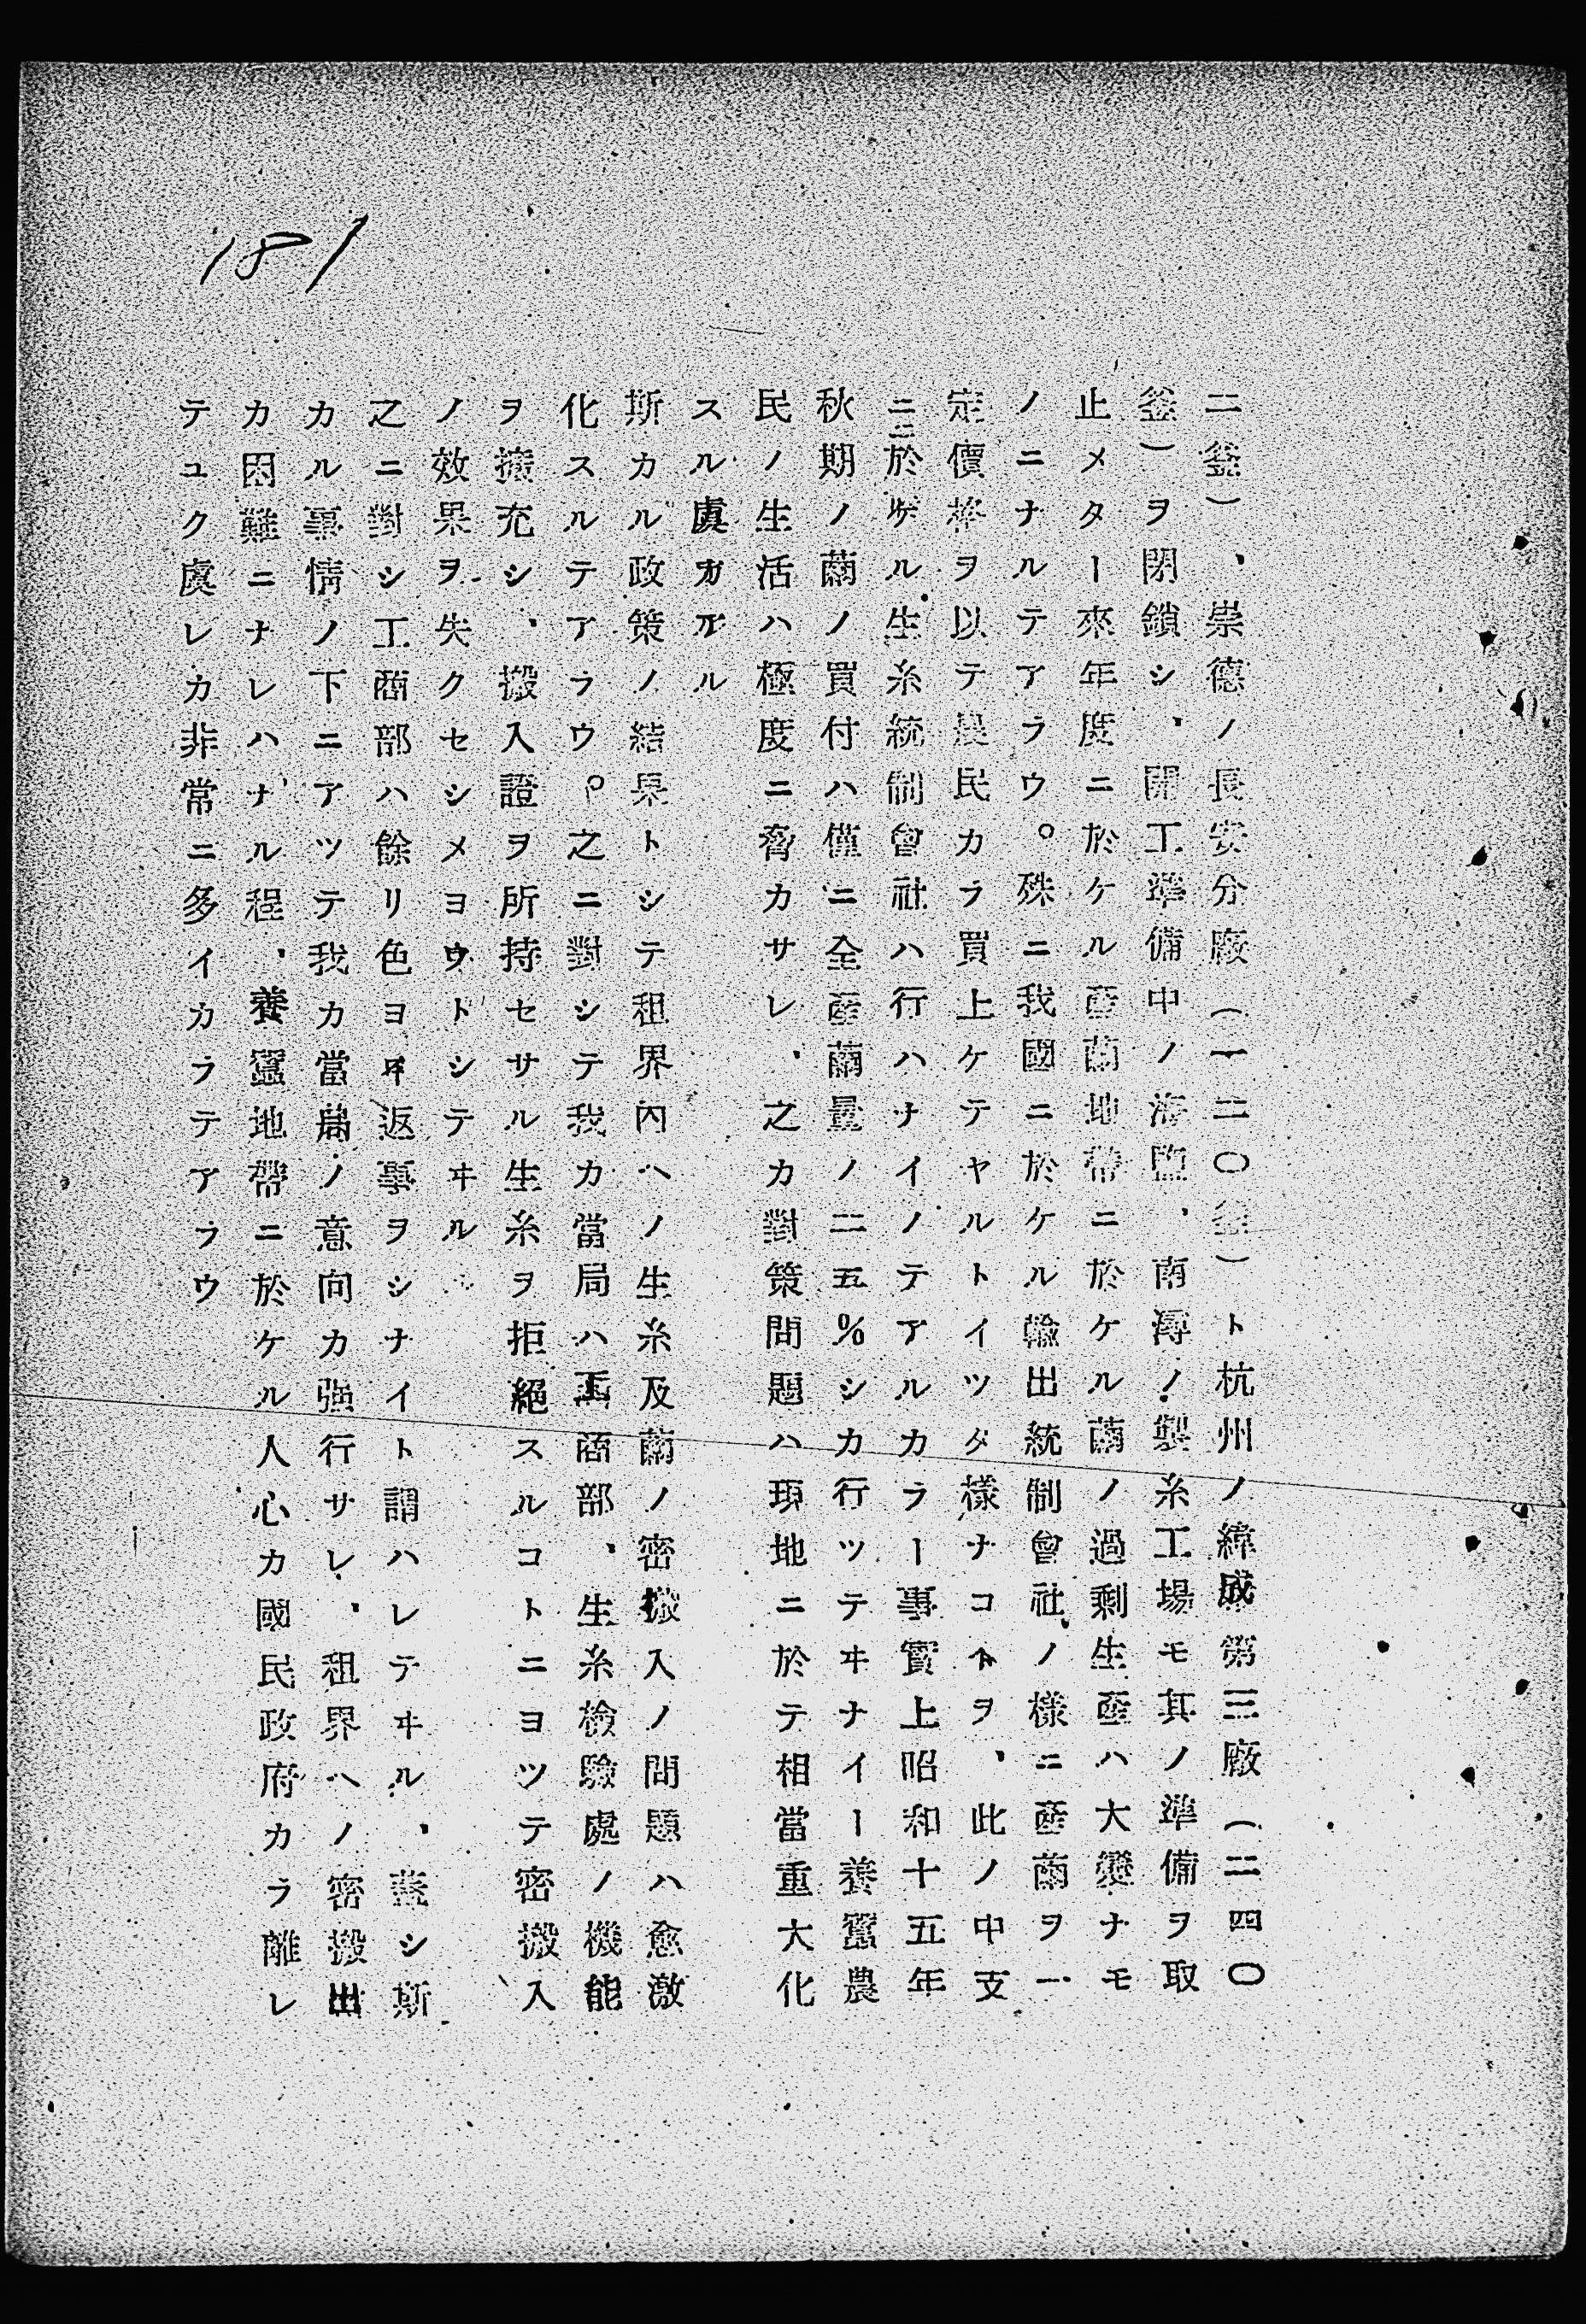 181
二釜）、崇德ノ長安分廠（一二〇釜）ト杭州ノ緯成第三廠（二四〇
釜）ヲ閉鎖シ、開工準備中ノ海鹽、南潯ノ製糸工場モ其ノ準備ヲ取
止メター來年度ニ於ケル產繭地帶ニ於ケル繭ノ過剩生產ハ大變ナモ
ノニナルテアラウ。殊ニ我國ニ於ケル輸出統制會社ノ樣ニ產繭ヲ一
定價格ヲ以テ農民カラ買上ケテヤルトイツタ樣ナコトヲ、此ノ中支
ニ於ケル生糸統制會社ハ行ハナイノテアルカラー事實上昭和十五年
秋期ノ繭ノ買付ハ僅ニ全產繭量ノ二五％シカ行ツテヰナイー養蠶農
民ノ生活ハ極度ニ脅カサレ、之カ對策問題ハ現地ニ於テ相當重大化
スル虞カアル
斯カル政策ノ結果トシテ租界內ヘノ生糸及繭ノ密搬入ノ問題ハ愈激
化スルテアラウ。之ニ對シテ我カ當局ハ工商部、生糸檢驗處ノ機能
ヲ擴充シ、搬入證ヲ所持セサル生糸ヲ拒絕スルコトニヨツテ密搬入
ノ效果ヲ失クセシメヨウトシテヰル
之ニ對シ工商部ハ餘リ色ヨイ返事ヲシナイト謂ハレテヰル、蓋シ斯
カル事情ノ下ニアツテ我カ當局ノ意向カ強行サレ、租界ヘノ密搬出
カ困難ニナレハナル程、養蠶地帶ニ於ケル人心カ國民政府カラ離レ
テユク虞レカ非常ニ多イカラテアラウ